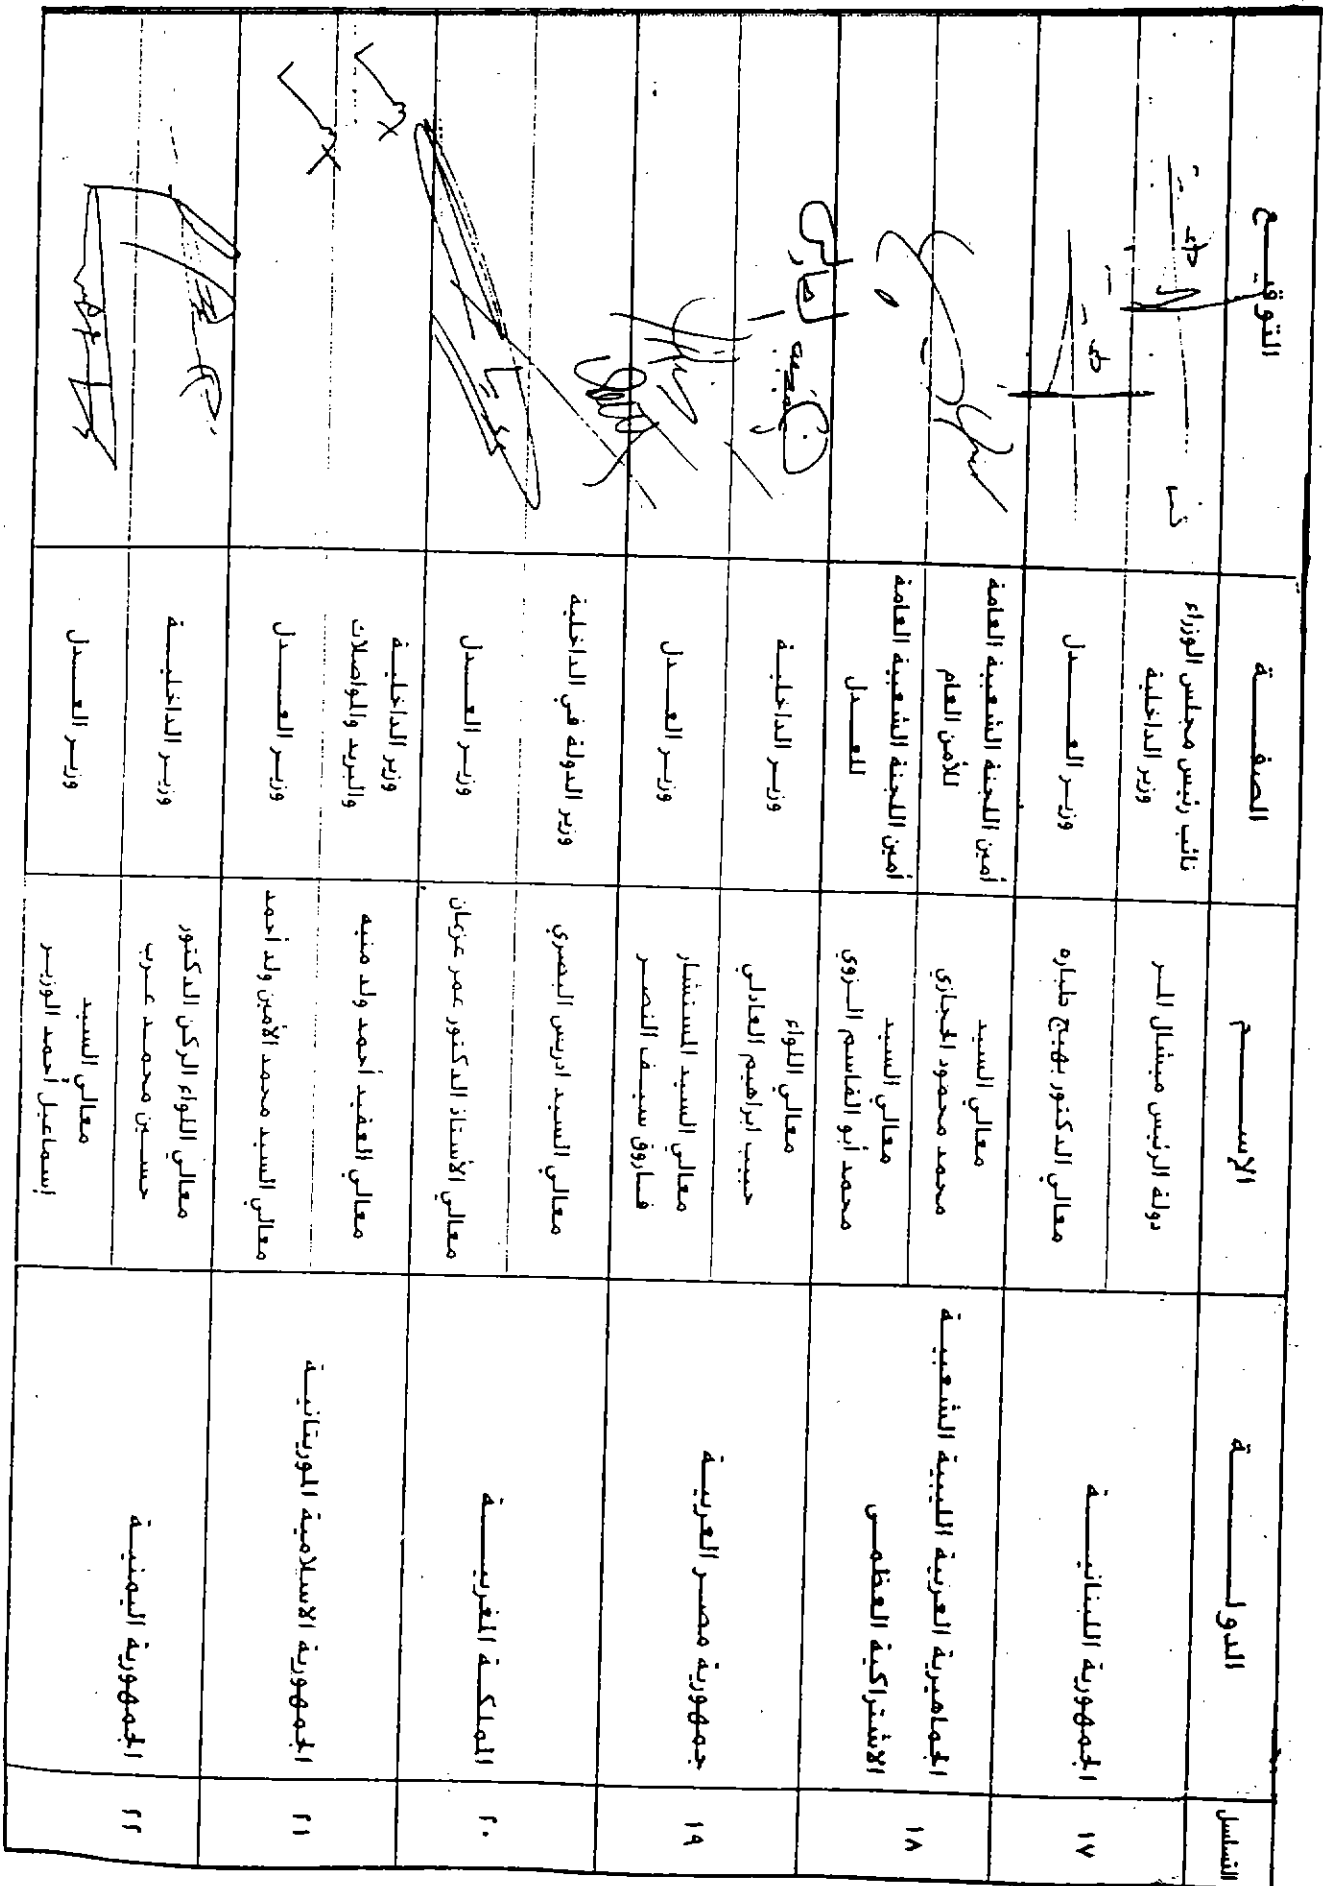 التسلسل
الدولـــــــــة
الإســـــــم
الصفـــــــة
التوقيـــــع
١٧
الجمهورية اللبنانيـــــــة
دولة الرئيس ميشال المــر
نائب رئيس مجلس الوزراء
وزير الداخلية
معالي الدكتور بهيج طباره
وزيــر العـــــدل
١٨
الجماهيرية العربية الليبية الشعبيــــة
الاشتراكية العظمــى
معالي السيد
محمد محمود الحجازي
أمين اللجنة الشعبية العامة
للأمن العام
معالي السيد
محمد أبو القاسم الــزوي
أمين اللجنة الشعبية العامة
للعـــدل
١٩
جمهورية مصــر العربيـــة
معالي اللواء
حبيب ابراهيم العادلي
وزيــر الداخليــة
معالي السيد المستشار
فــاروق سيــف النصــر
وزيــر العـــدل
٢٠
المملكــة المغربيــــــة
معالي السيد ادريس البصري
وزير الدولة في الداخلية
معالي الأستاذ الدكتور عمر عزيمان
وزيــر العــــدل
٢١
الجمهورية الاسلامية الموريتانيــة
معالي العقيد أحمد ولد منيه
وزير الداخليــة
والبريد والمواصلات
معالي السيد محمد الأمين ولد أحمد
وزيــر العــــدل
٢٢
الجمهورية اليمنيــــة
معالي اللواء الركن الدكتور
حســين محمــد عــرب
وزيــر الداخليــــة
معالي السيد
إسماعيل أحمد الوزيــر
وزيــر العــــدل